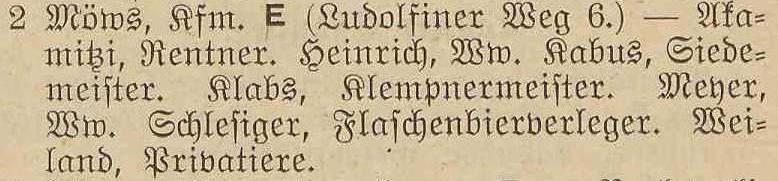 2 Möws, Kfm. E (Ludolfiner Weg 6.) — Aka-
mitzi, Rentner. Heinrich, Ww. Kabus, Siede-
meister. Klabs, Klempnermeister. Meyer,
Ww. Schlesiger, Flaschenbierverleger. Wei-
land, Privatiere.